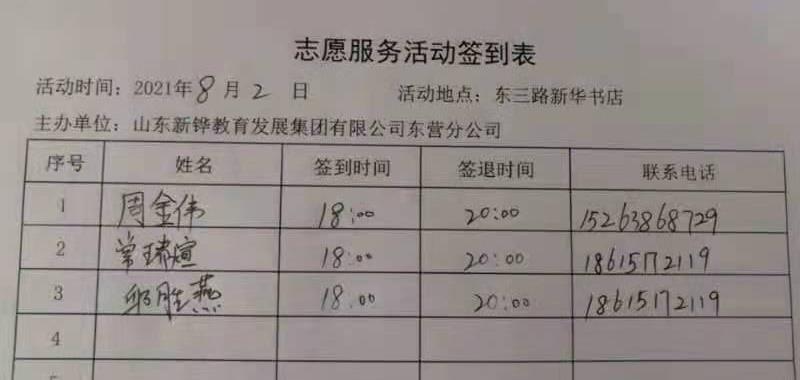 志愿服务活动签到表
活动时间：2021年8月2日 活动地点：东三路新华书店
主办单位：山东新铧教育发展集团有限公司东营分公司
序号 姓名 签到时间 签退时间 联系电话
1 周金伟 18:00 20:00 15263868729
2 常瑞煊 18:00 20:00 18615172119
3 邱胜燕 18.00 20:00 18615172119
4